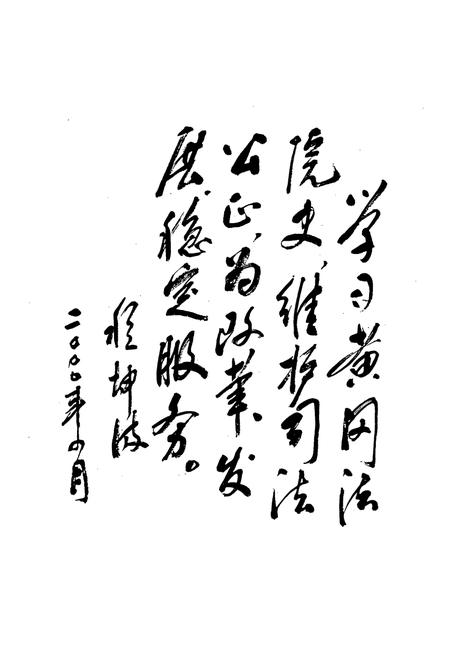 学习黄冈法
院史、维护司法
公正、为改革、发
展、稳定服务。
程坤波
二〇〇〇年四月